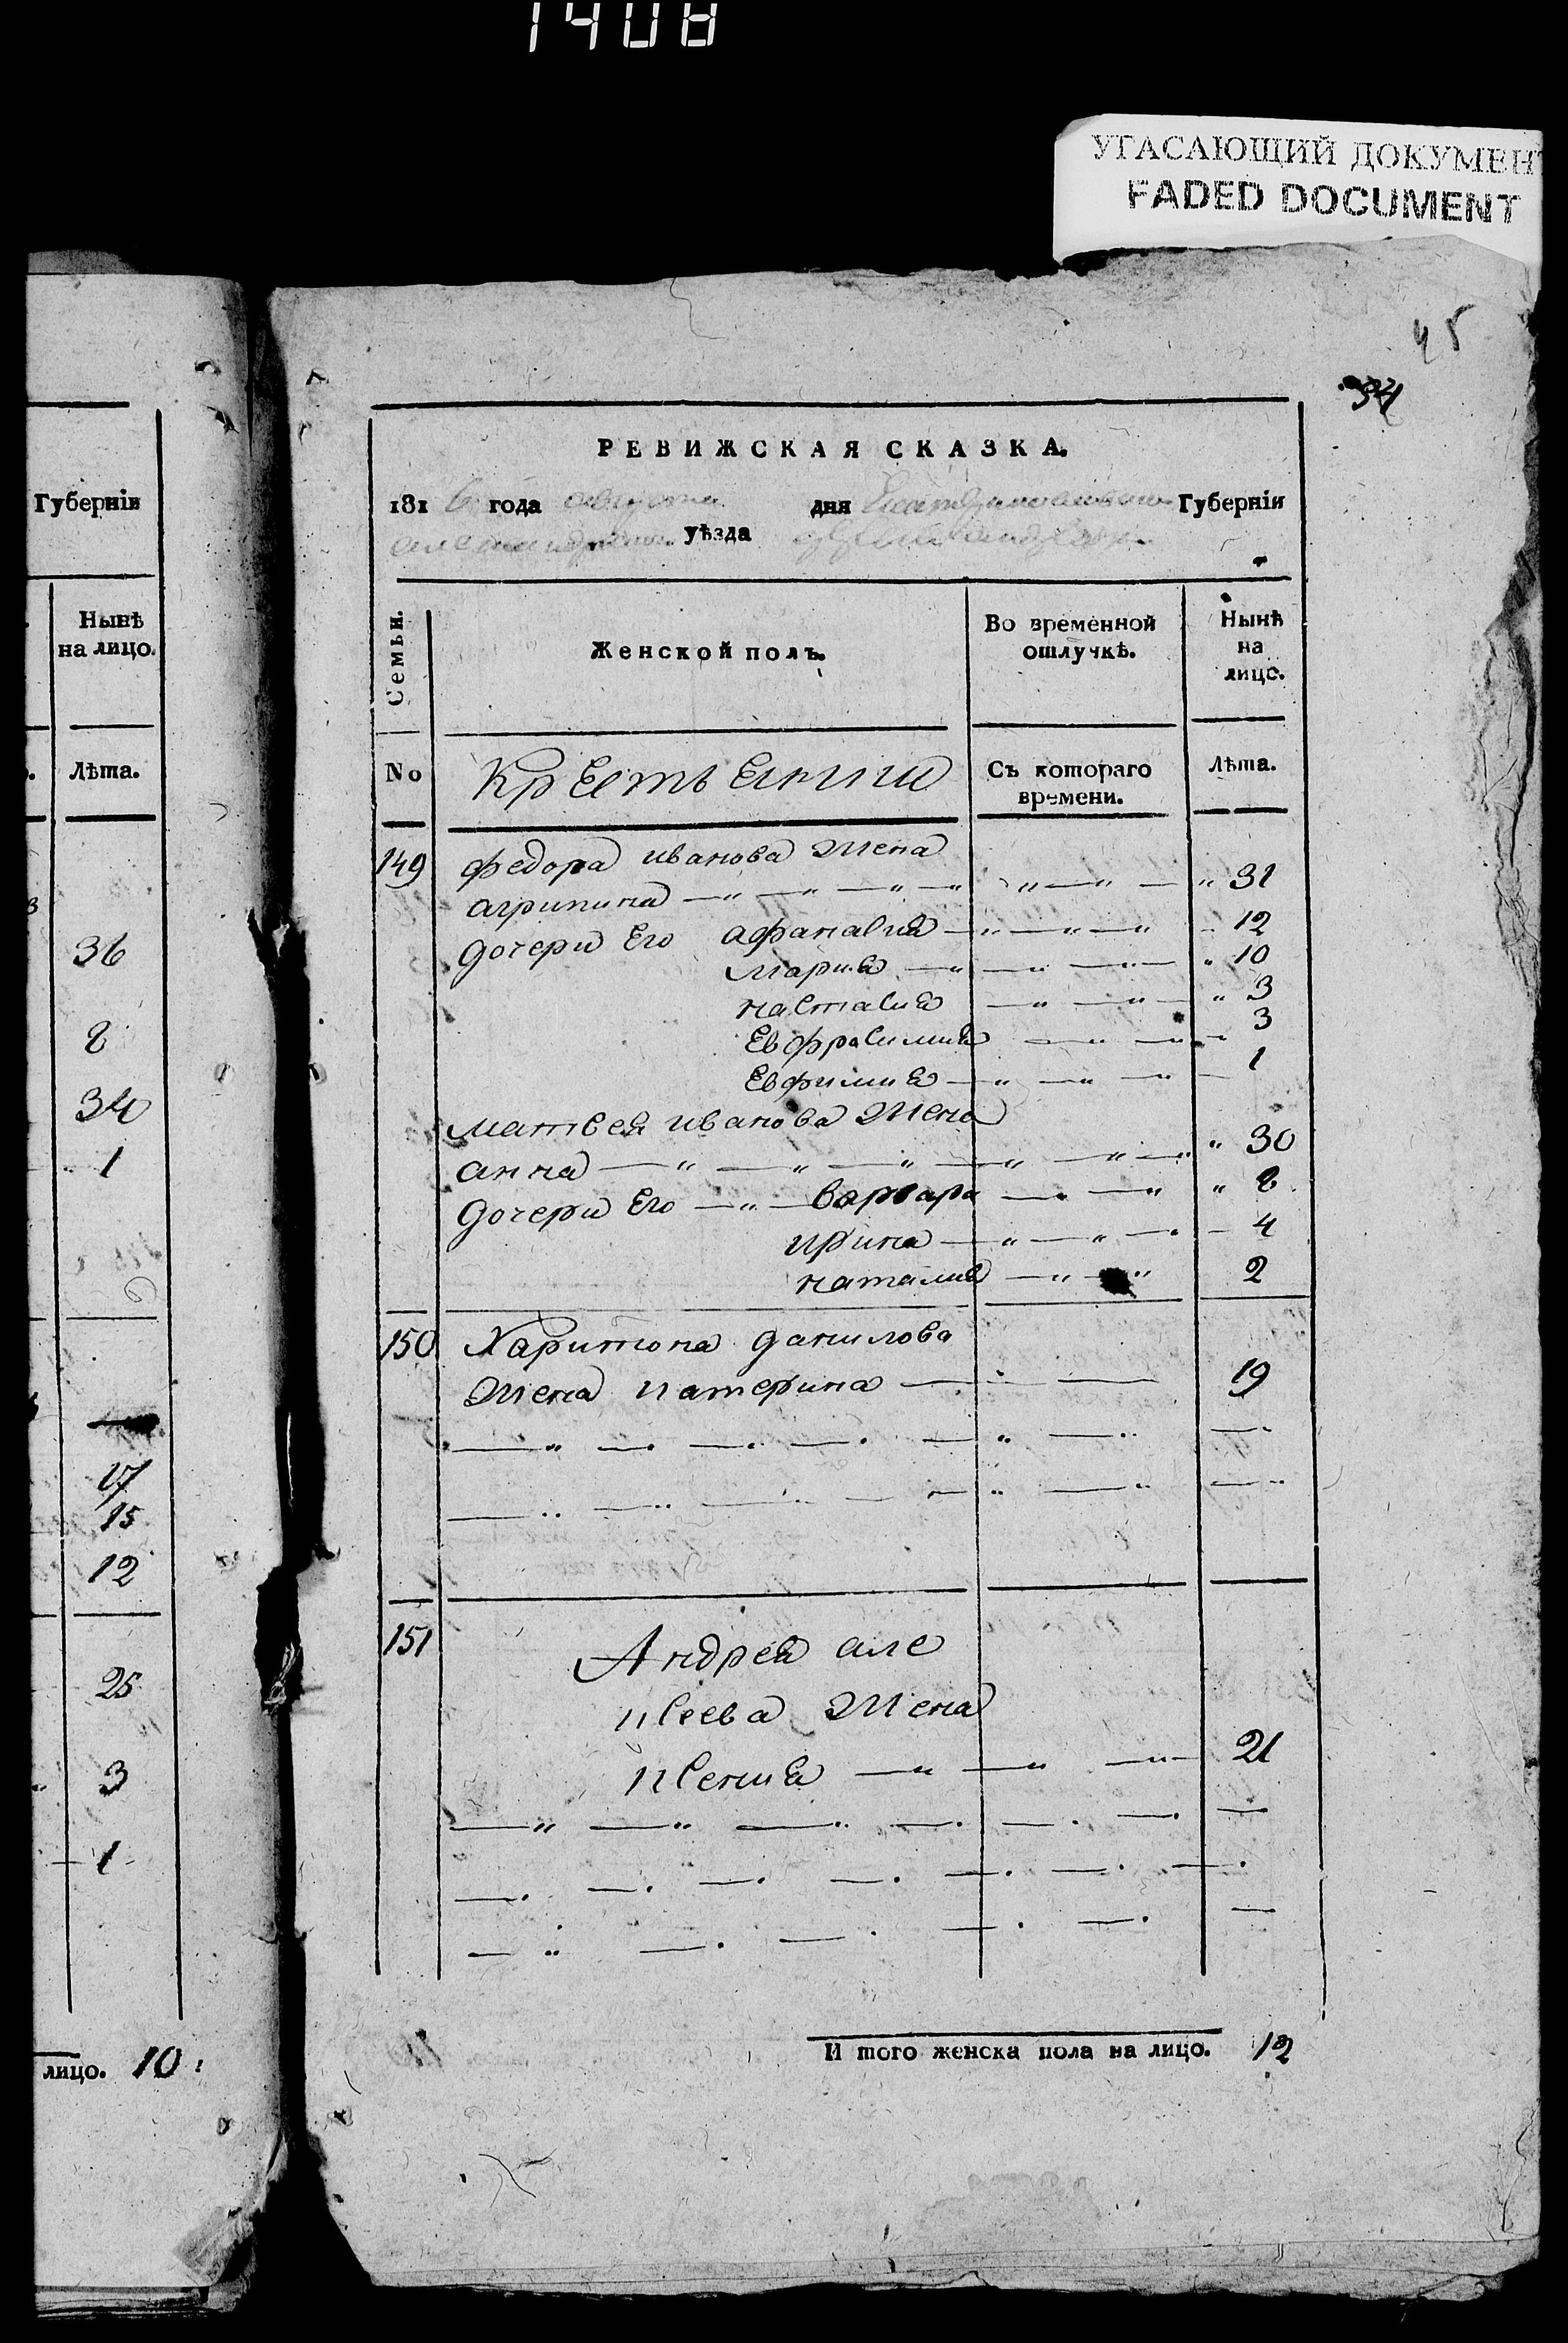 1408
УГАСАЮЩИЙ ДОКУМЕН
FADED DOCUMENT
45
34
Губернiи
Нынѣ
на лицо.
Лѣта.
36
8
34
1
17
15
12
25
3
1
лицо. 10
РЕВИЖСКАЯ СКАЗКА.
1816 года августа дня Губернiи
уѣзда
Семьи.
Женской полъ.
Во временной
отлучкѣ.
Нынѣ
на
лицо.
No
Крестьянии
Съ котораго
времени.
Лѣта.
149 федора иванова жена
агрипина 31
дочери Его афанасия 12
мария 10
настасия 3
Евфросимия 3
Евфимия 1
матвея иванова жена
анна 30
дочери Его варвара 8
ирина 4
наталия 2
150 Харитона данилова
жена катерина 19
151 Андрея але
ксеева жена
ксения 21
И того женска пола на лицо. 12